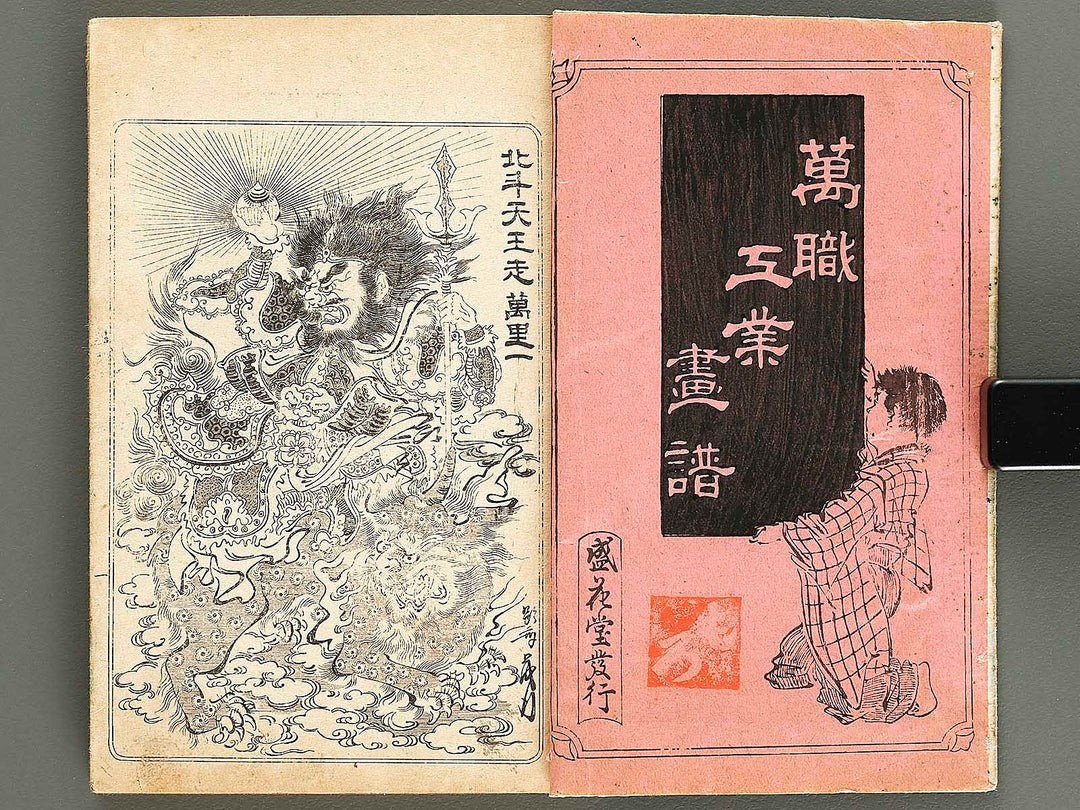 萬職
工業
畫譜
盛花堂發行
北斗天王走萬里一